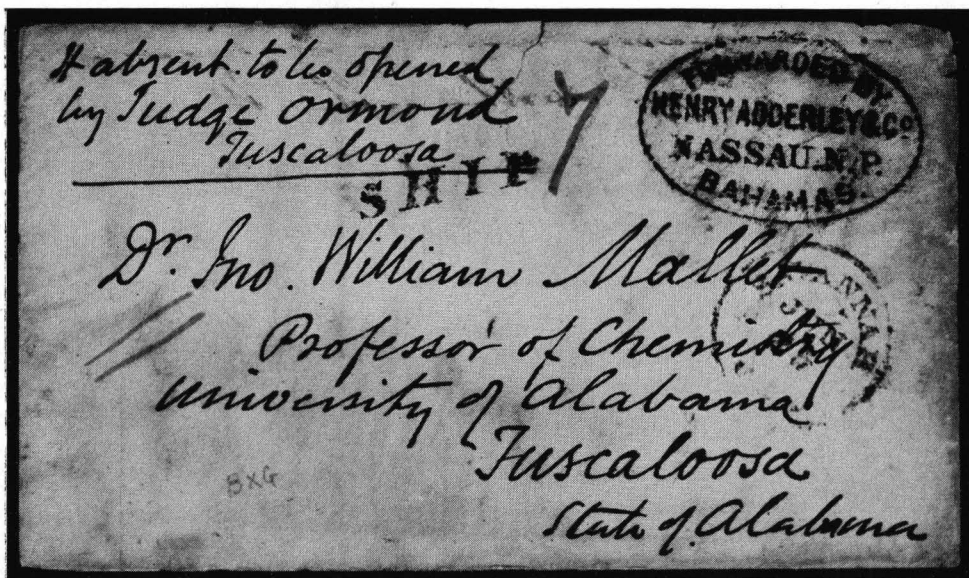 If absent to be opened
by Judge Ormond
Tuscaloosa
SHIP
7
FORWARDED BY
HENRY ADDERLEY & Co
NASSAU. N. P.
BAHAMAS.
Dr. Jno. William Mallet
Professor of Chemistry
University of Alabama
Tuscaloosa
State of Alabama
BXG